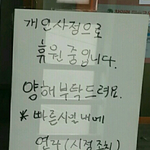 개인사정으로
휴원 중입니다.
양해부탁드려요.
* 빠른시일내에
연락(시정조치)